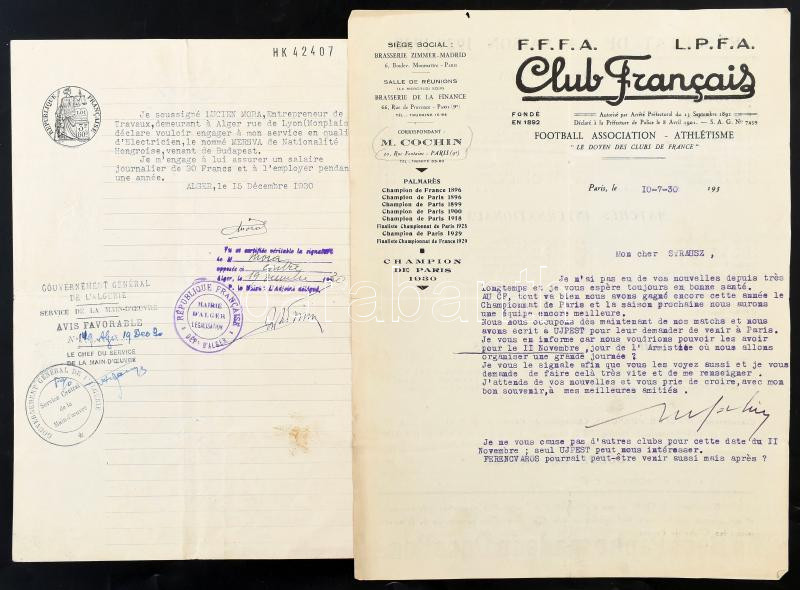 HK 42407
RÉPUBLIQUE FRANÇAISE
Je soussigné LUCIEN MORA, Entrepreneur de
Travaux, demeurant à Alger rue de Lyon(Monplais
déclare vouloir engager à mon service en quali
d'Electricien, le nommé MERSVA de Nationalité
Hongroise, venant de Budapest.
Je m'engage à lui assurer un salaire
journalier de 30 Francs et à l'employer pendan
une année.
ALGER, le 15 Décembre 1930
Vu et certifiée véritable la signature
de M Mora
apposée ci contre
Alger, 19
P. le Maire: L'Adjoint délégué,
RÉPUBLIQUE FRANÇAISE
MAIRIE
D'ALGER
LÉGALISATION
DÉPT D'ALGER
GOUVERNEMENT GÉNÉRAL
DE L'ALGÉRIE
SERVICE DE LA MAIN-D'ŒUVRE
AVIS FAVORABLE
N° 149 Alger 19 Dec 30
LE CHEF DU SERVICE
DE LA MAIN-D'ŒUVRE
GOUVERNEMENT GÉNÉRAL DE L'ALGÉRIE
Service Central
de la
Main-d'œuvre
SIÈGE SOCIAL:
BRASSERIE ZIMMER-MADRID
6, Boulev. Montmartre - Paris
SALLE DE RÉUNIONS
(LE MERCREDI SOIR)
BRASSERIE DE LA FINANCE
66, Rue de Provence - Paris (9e)
CORRESPONDANT:
M. COCHIN
20, Rue Fontaine - PARIS (9e)
PALMARÈS
Champion de France 1896
Champion de Paris 1896
Champion de Paris 1899
Champion de Paris 1900
Champion de Paris 1918
Finaliste Championnat de Paris 1928
Champion de Paris 1929
Finaliste Championnat de France 1929
CHAMPION
DE PARIS
1930
F.F.F.A. L.P.F.A.
Club Français
FONDÉ
EN 1892
Autorisé par Arrêté Préfectoral du 13 Septembre 1892
Déclaré à la Préfecture de Police le 8 Avril 1902. — S. A. G. N° 7458
FOOTBALL ASSOCIATION - ATHLÉTISME
"LE DOYEN DES CLUBS DE FRANCE"
Paris, le 10-7-30 193
Mon cher STRAUSZ ,
Je m'ai pas eu de vos nouvelles depuis très
longtemps et je vous espère toujours en bonne santé.
AU CF, tout va bien nous avons gagné encore cette année le
Championnat de Paris et la saison prochaine nous aurons
une équipe encore meilleure.
Nous nous occupons maintenant de nos matchs et nous
avons écrit à UJPEST pour leur demander de venir à Paris.
Je vous en informe car nous voudrions pouvoir les avoir
pour le II Novembre, jour de l'Armistice où nous allons
organiser une grande journée ?
Je vous le signale afin que vous les voyez aussi et je vous
demande de faire celà très vite et de me renseigner.
J'attends de vos nouvelles et vous prie de croire, avec mon
bon souvenir, à mes meilleures amitiés .
Je ne vous cause pas d'autres clubs pour cette date du II
Novembre ; seul UJPEST peut nous intéresser.
FERENCVAROS pourrait peut-être venir aussi mais après ?